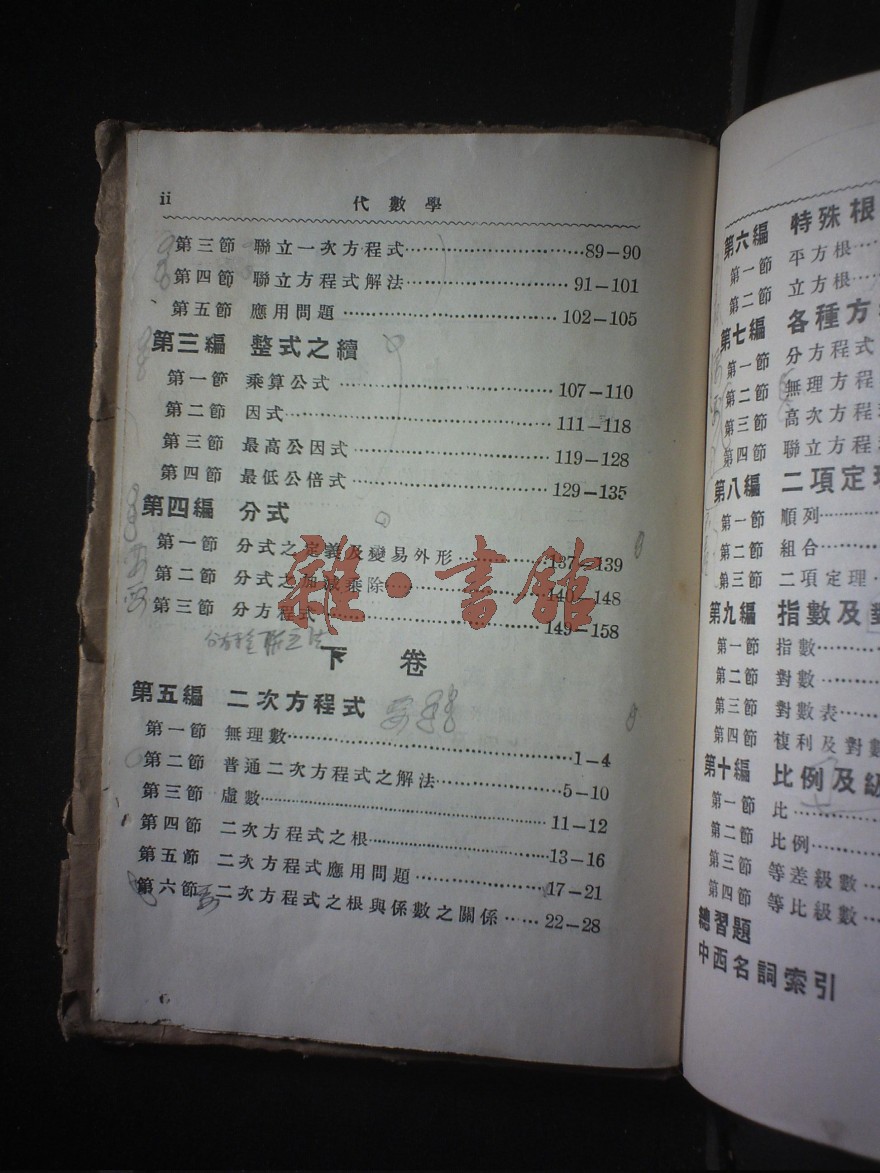 ii 代數學
第三節 聯立一次方程式……89—90
第四節 聯立方程式解法……91—101
第五節 應用問題……102—105
第三編 整式之續
第一節 乘算公式……107—110
第二節 因式……111—118
第三節 最高公因式……119—128
第四節 最低公倍式……129—135
第四編 分式
第一節 分式之定義及變易外形……137—139
第二節 分式之加減乘除……140—148
第三節 分方程式……149—158
雜·書館
下 卷
第五編 二次方程式
第一節 無理數……1—4
第二節 普通二次方程式之解法……5—10
第三節 虛數……11—12
第四節 二次方程式之根……13—16
第五節 二次方程式應用問題……17—21
第六節 二次方程式之根與係數之關係……22—28
第六編 特殊根
第一節 平方根……
第二節 立方根……
第七編 各種方
第一節 分方程式
第二節 無理方程
第三節 高次方程
第四節 聯立方程
第八編 二項定理
第一節 順列……
第二節 組合……
第三節 二項定理……
第九編 指數及對
第一節 指數……
第二節 對數……
第三節 對數表……
第四節 複利及對數
第十編 比例及級
第一節 比……
第二節 比例……
第三節 等差級數……
第四節 等比級數……
總習題
中西名詞索引